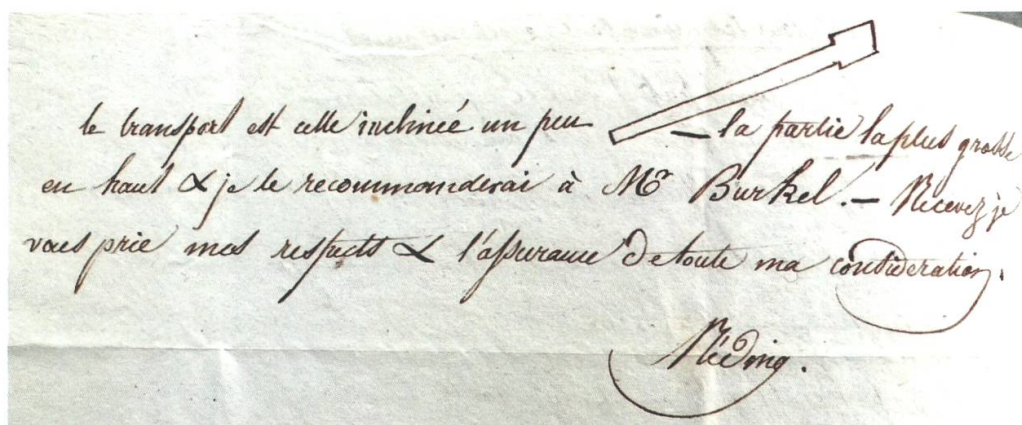 le transport est celle inclinée un peu — la partie la plus grosse
en haut & je le recommanderai à Mr Burkel. — Recevez je
vous prie mes respects & l'assurance de toute ma consideration.
Réding.